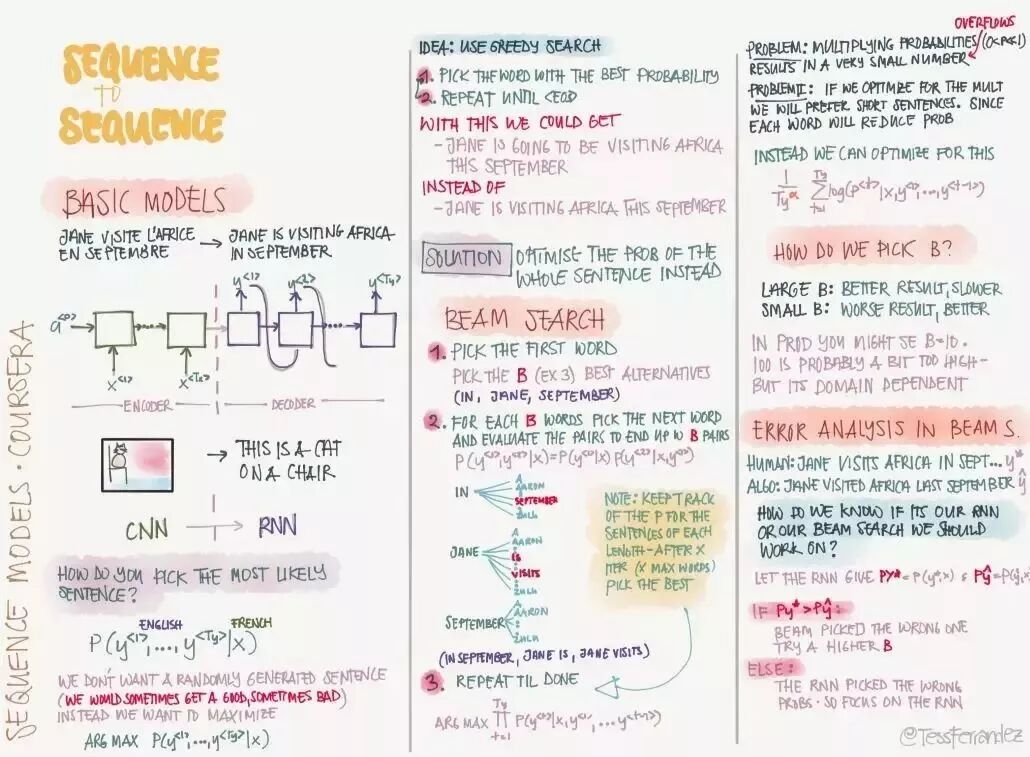 SEQUENCE
TO
SEQUENCE
BASIC MODELS
JANE VISITE L'AFRICE
EN SEPTEMBRE
→ JANE IS VISITING AFRICA
IN SEPTEMBER
y<1> y<2> y<Ty>
a<0>
x<1> x<Tx>
ENCODER DECODER
→ THIS IS A CAT
ON A CHAIR
CNN → RNN
HOW DO YOU PICK THE MOST LIKELY
SENTENCE?
ENGLISH FRENCH
P(y<1>,..., y<Ty>|x)
WE DON'T WANT A RANDOMLY GENERATED SENTENCE
(WE WOULD SOMETIMES GET A GOOD, SOMETIMES BAD)
INSTEAD WE WANT TO MAXIMIZE
ARG MAX P(y<1>,...,y<Ty>|x)
SEQUENCE MODELS · COURSERA
IDEA: USE GREEDY SEARCH
1. PICK THE WORD WITH THE BEST PROBABILITY
2. REPEAT UNTIL <EOS>
WITH THIS WE COULD GET
- JANE IS GOING TO BE VISITING AFRICA
THIS SEPTEMBER
INSTEAD OF
- JANE IS VISITING AFRICA THIS SEPTEMBER
SOLUTION OPTIMISE THE PROB OF THE
WHOLE SENTENCE INSTEAD
BEAM SEARCH
1. PICK THE FIRST WORD
PICK THE B (EX 3) BEST ALTERNATIVES
(IN, JANE, SEPTEMBER)
2. FOR EACH B WORDS PICK THE NEXT WORD
AND EVALUATE THE PAIRS TO END UP W B PAIRS
P(y<1>,y<2>|x)=P(y<1>|x) P(y<2>|x,y<1>)
IN
A
AARON
SEPTEMBER
ZULU
JANE
A
AARON
IS
VISITS
ZULU
SEPTEMBER
A
AARON
ZULU
NOTE: KEEP TRACK
OF THE P FOR THE
SENTENCES OF EACH
LENGTH - AFTER X
ITER (X MAX WORDS)
PICK THE BEST
(IN SEPTEMBER, JANE IS, JANE VISITS)
3. REPEAT TIL DONE
Ty
ARG MAX ∏ P(y<t>|x,y<1>,...y<t-1>)
t=1
OVERFLOWS
PROBLEM: MULTIPLYING PROBABILITIES (0<P≪1)
RESULTS IN A VERY SMALL NUMBER
PROBLEM II: IF WE OPTIMIZE FOR THE MULT
WE WILL PREFER SHORT SENTENCES. SINCE
EACH WORD WILL REDUCE PROB
INSTEAD WE CAN OPTIMIZE FOR THIS
1/Ty^α ∑ t=1 Ty log(P<t>|x,y<1>,...,y<t-1>)
HOW DO WE PICK B?
LARGE B: BETTER RESULT, SLOWER
SMALL B: WORSE RESULT, BETTER
IN PROD YOU MIGHT SE B=10.
100 IS PROBABLY A BIT TOO HIGH -
BUT ITS DOMAIN DEPENDENT
ERROR ANALYSIS IN BEAM S.
HUMAN: JANE VISITS AFRICA IN SEPT... y*
ALGO: JANE VISITED AFRICA LAST SEPTEMBER ŷ
HOW DO WE KNOW IF ITS OUR RNN
OR OUR BEAM SEARCH WE SHOULD
WORK ON?
LET THE RNN GIVE Py*=P(y*,x) & Pŷ=P(ŷ,x
IF Py*>Pŷ:
BEAM PICKED THE WRONG ONE
TRY A HIGHER B
ELSE:
THE RNN PICKED THE WRONG
PROBS · SO FOCUS ON THE RNN
@TessFerrandez